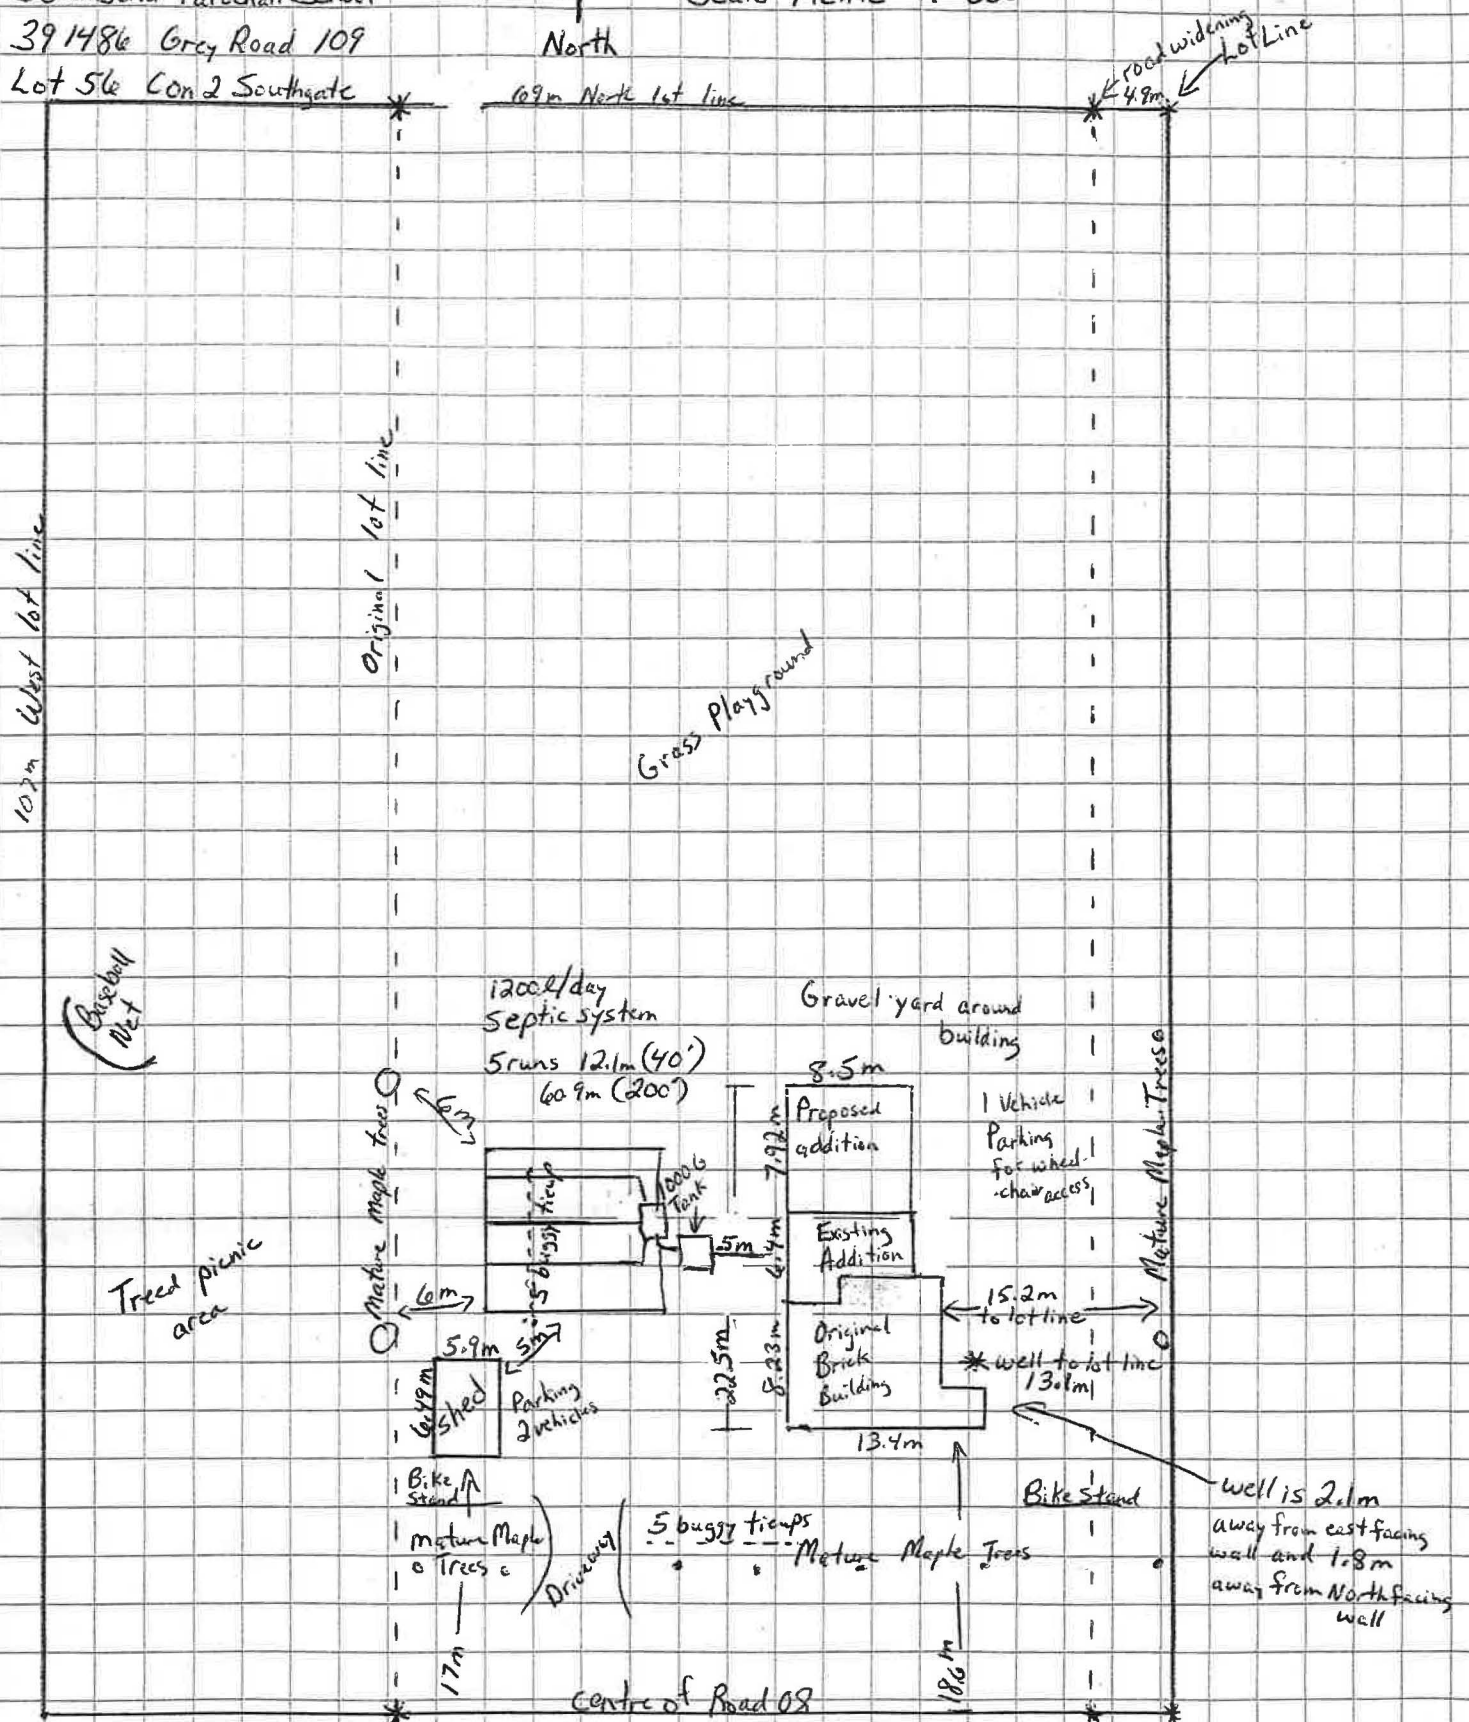 Parochial School
Scale Metric
391486 Grey Road 109
North
Lot 56 Con 2 Southgate
69m North lot line
road widening
4.9m
Lot Line
Original lot line
102m West lot line
Grass Playground
(Baseball
Net
1200l/day
Septic system
5 runs 12.1m (40')
60.9m (200')
Gravel yard around
building
8.5m
Proposed
addition
7.92m
1 Vehicle
Parking
for wheel
-chair access
Mature Maple Trees
Mature Maple trees
6m
1000G
Tank
5 buggy tieup
5m
6.4m
Existing
Addition
Treed picnic
area
6m
15.2m
to lot line
Original
Brick
Building
8.23m
22.5m
well to lot line
13.1m
5.9m
5m
6.49m
shed
Parking
2 vehicles
13.4m
Bike
Stand
Bike Stand
well is 2.1m
away from east facing
wall and 1.8m
away from North facing
wall
mature Maple
Trees
Driveway
5 buggy tieups
Mature Maple Trees
17m
18.6m
Centre of Road 08